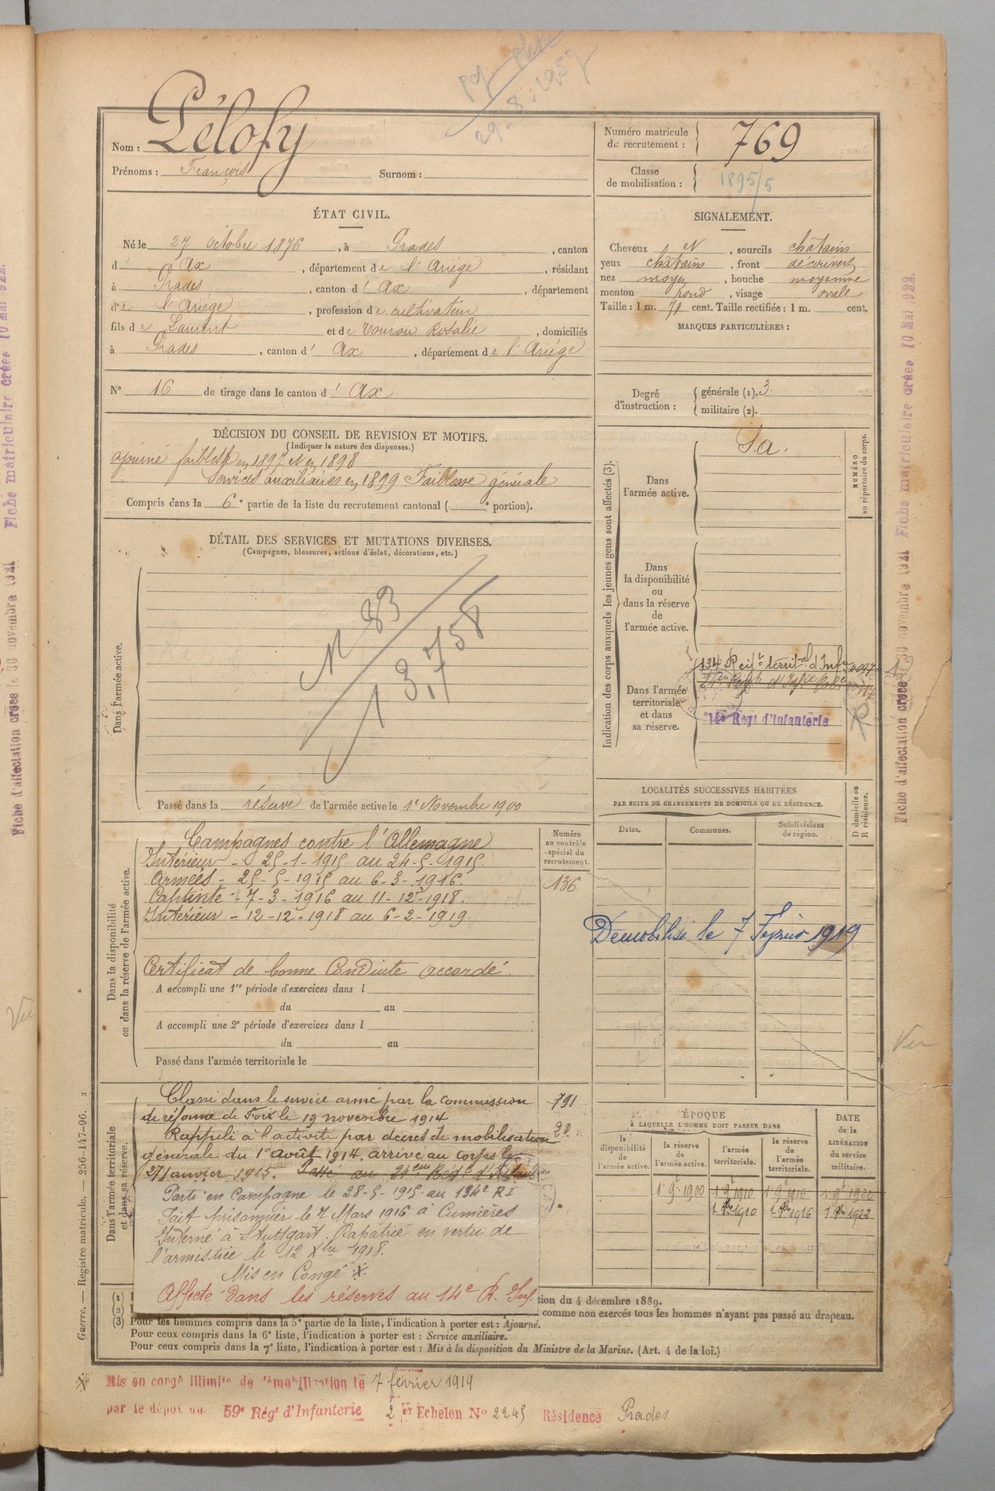 29.8.1957
Nom : Pélofy
Prénoms : François Surnom :
Numéro matricule
de recrutement : 769
Classe
de mobilisation : 1895/5
ÉTAT CIVIL.
Né le 27 octobre 1876, à Prades, canton
d' Ax, département de l'Ariège, résidant
à Prades, canton d' Ax, département
de l'Ariège, profession de cultivateur
fils de Laurent et de Tourou Rosalie, domiciliés
à Prades, canton d' Ax, département de l'Ariège
N° 16 de tirage dans le canton d' Ax
SIGNALEMENT.
Cheveux N, sourcils châtains
yeux châtains, front découvert,
nez moyen, bouche moyenne
menton rond, visage ovale
Taille : 1 m. 70 cent. Taille rectifiée : 1 m. cent.
MARQUES PARTICULIÈRES :
Degré
d'instruction :
générale (1). 3
militaire (2).
DÉCISION DU CONSEIL DE REVISION ET MOTIFS.
(Indiquer la nature des dispenses.)
ajourné faiblesse en 1897 et en 1898
Services auxiliaires en 1899 Faiblesse générale
Compris dans la 6e partie de la liste du recrutement cantonal ( e portion).
DÉTAIL DES SERVICES ET MUTATIONS DIVERSES.
(Campagnes, blessures, actions d'éclat, décorations, etc.)
Dans l'armée active.
N 83
13,758
Passé dans la réserve de l'armée active le 1er Novembre 1900
Indication des corps auxquels les jeunes gens sont affectés (3).
NUMÉRO
au répertoire du corps.
Dans
l'armée active.
Sa.
Dans
la disponibilité
ou
dans la réserve
de
l'armée active.
Dans l'armée
territoriale
et dans
sa réserve.
134 Regt territal d'Infie
14e Regt d'Infanterie
LOCALITÉS SUCCESSIVES HABITÉES
PAR SUITE DE CHANGEMENTS DE DOMICILE OU DE RÉSIDENCE.
Dates. Communes. Subdivisions
de région.
D domicile ou
R résidence.
Démobilisé le 7 Février 1919
Dans la disponibilité
ou dans la réserve de l'armée active.
Numéro
au contrôle
spécial du
recrutement.
136
Campagnes contre l'Allemagne
Intérieur - 25-1-1915 au 24-5-1915.
Armées - 25-5-1915 au 6-3-1916.
Captivité - 7-3-1916 au 11-12-1918.
Intérieur - 12-12-1918 au 6-2-1919.
Certificat de bonne Conduite accordé.
A accompli une 1re période d'exercices dans l
du au
A accompli une 2e période d'exercices dans l
du au
Passé dans l'armée territoriale le
Dans l'armée territoriale
et dans sa réserve.
Classé dans le service armé par la commission 791
de réforme de Foix le 19 novembre 1914
Rappelé à l'activité par décret de mobilisation
générale du 1er août 1914, arrivé au corps le
27 Janvier 1915. Passé au
Parti en Campagne le 28-5-1915 au 134e RI
Fait prisonnier le 7 Mars 1916 à Cumières
Interné à Stuttgart. Rapatrié en vertu de
l'armistice le 12 Xbre 1918.
Mis en Congé
Affecté dans les réserves au 14e R. Inf
ÉPOQUE
À LAQUELLE L'HOMME DOIT PASSER DANS
la
disponibilité
de
l'armée active.
la réserve
de
l'armée active.
l'armée
territoriale.
la réserve
de
l'armée
territoriale.
DATE
DE LA
LIBÉRATION
du service
militaire.
1 9 1900 1 9 1910 1 9 1916 1 9 1922
1 9 1910 1 9 1916 1 9 1922
(1)
tion du 4 décembre 1889.
(2)
comme non exercés tous les hommes n'ayant pas passé au drapeau.
(3) Pour les hommes compris dans la 5e partie de la liste, l'indication à porter est : Ajourné.
Pour ceux compris dans la 6e liste, l'indication à porter est : Service auxiliaire.
Pour ceux compris dans la 7e liste, l'indication à porter est : Mis à la disposition du Ministre de la Marine. (Art. 4 de la loi.)
Mis en congé illimité de démobilisation le 7 février 1919
par le dépôt du 59e Régt d'Infanterie 2e Echelon No 2245 Résidence Prades
Guerre. — Registre matricule. — 256-147-96.
Fiche d'affectation créée le 30 novembre 1921 Fiche matriculaire créée 10 Mai 1923.
Fiche d'affectation créée le 30 novembre 1921 Fiche matriculaire créée 10 Mai 1923.
Vu